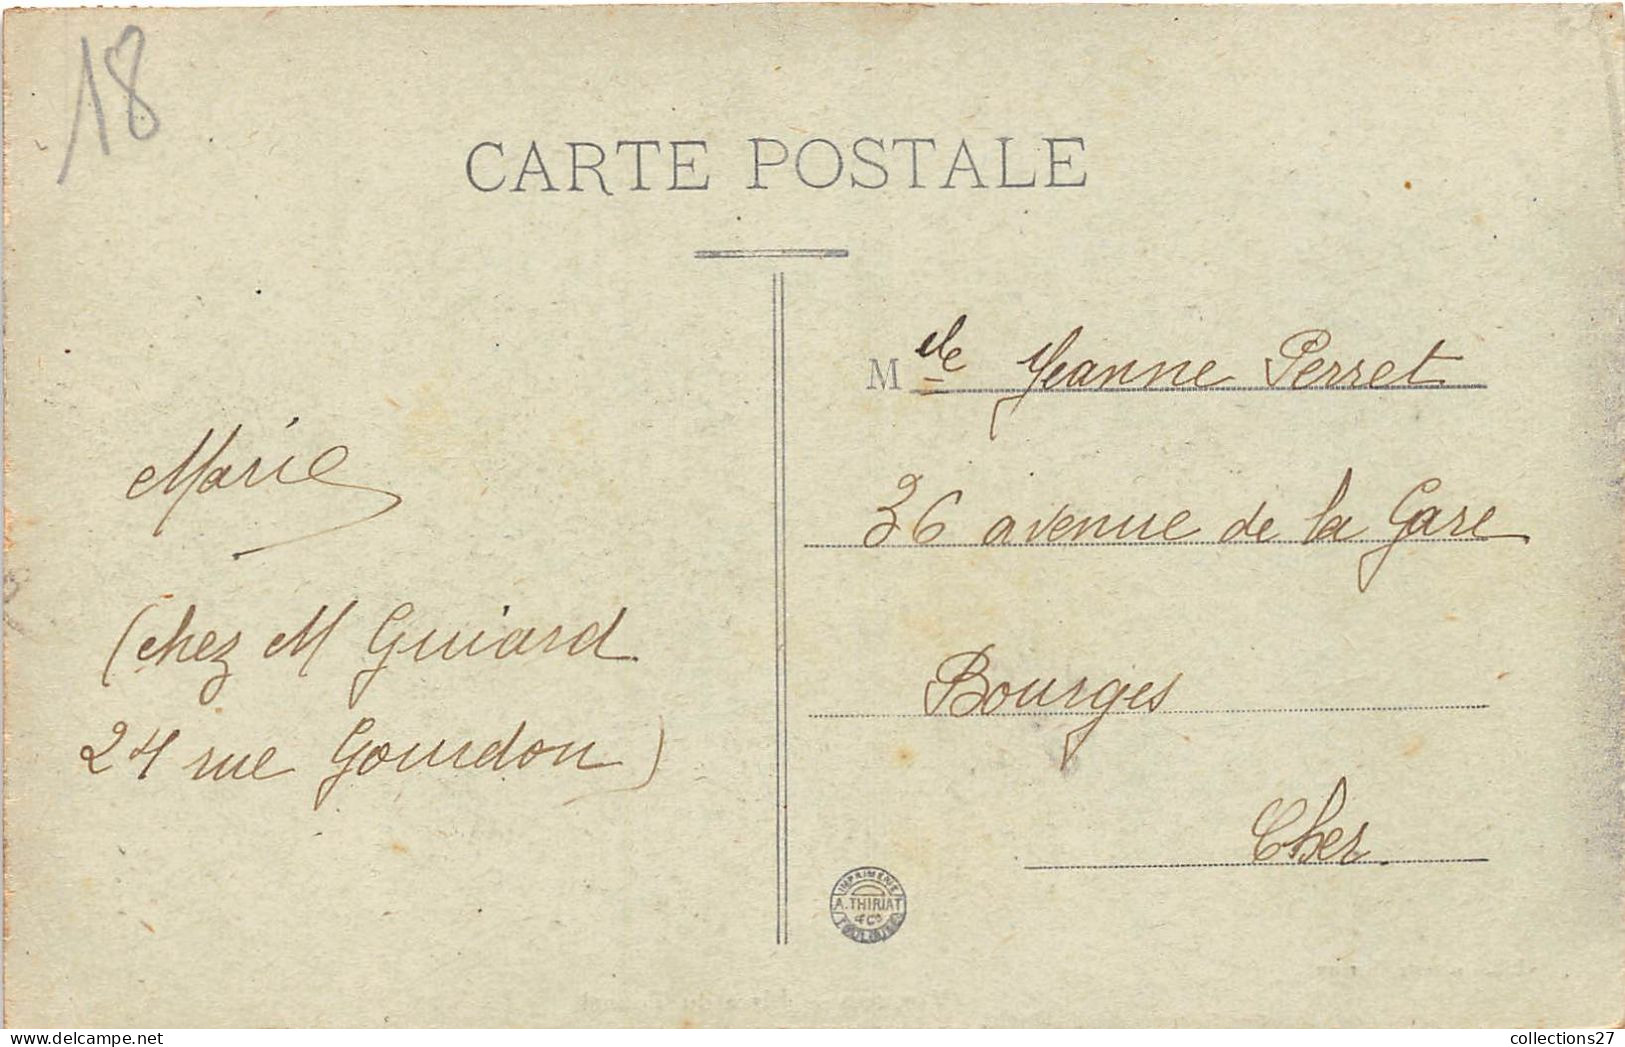 18
CARTE POSTALE
Marie
(chez M Guiard
24 rue Gourdon)
Mlle Jeanne Perret
36 avenue de la Gare
Bourges
Cher
IMPRIMERIE
A. THIRIAT
& Cie
TOULOUSE
collections27